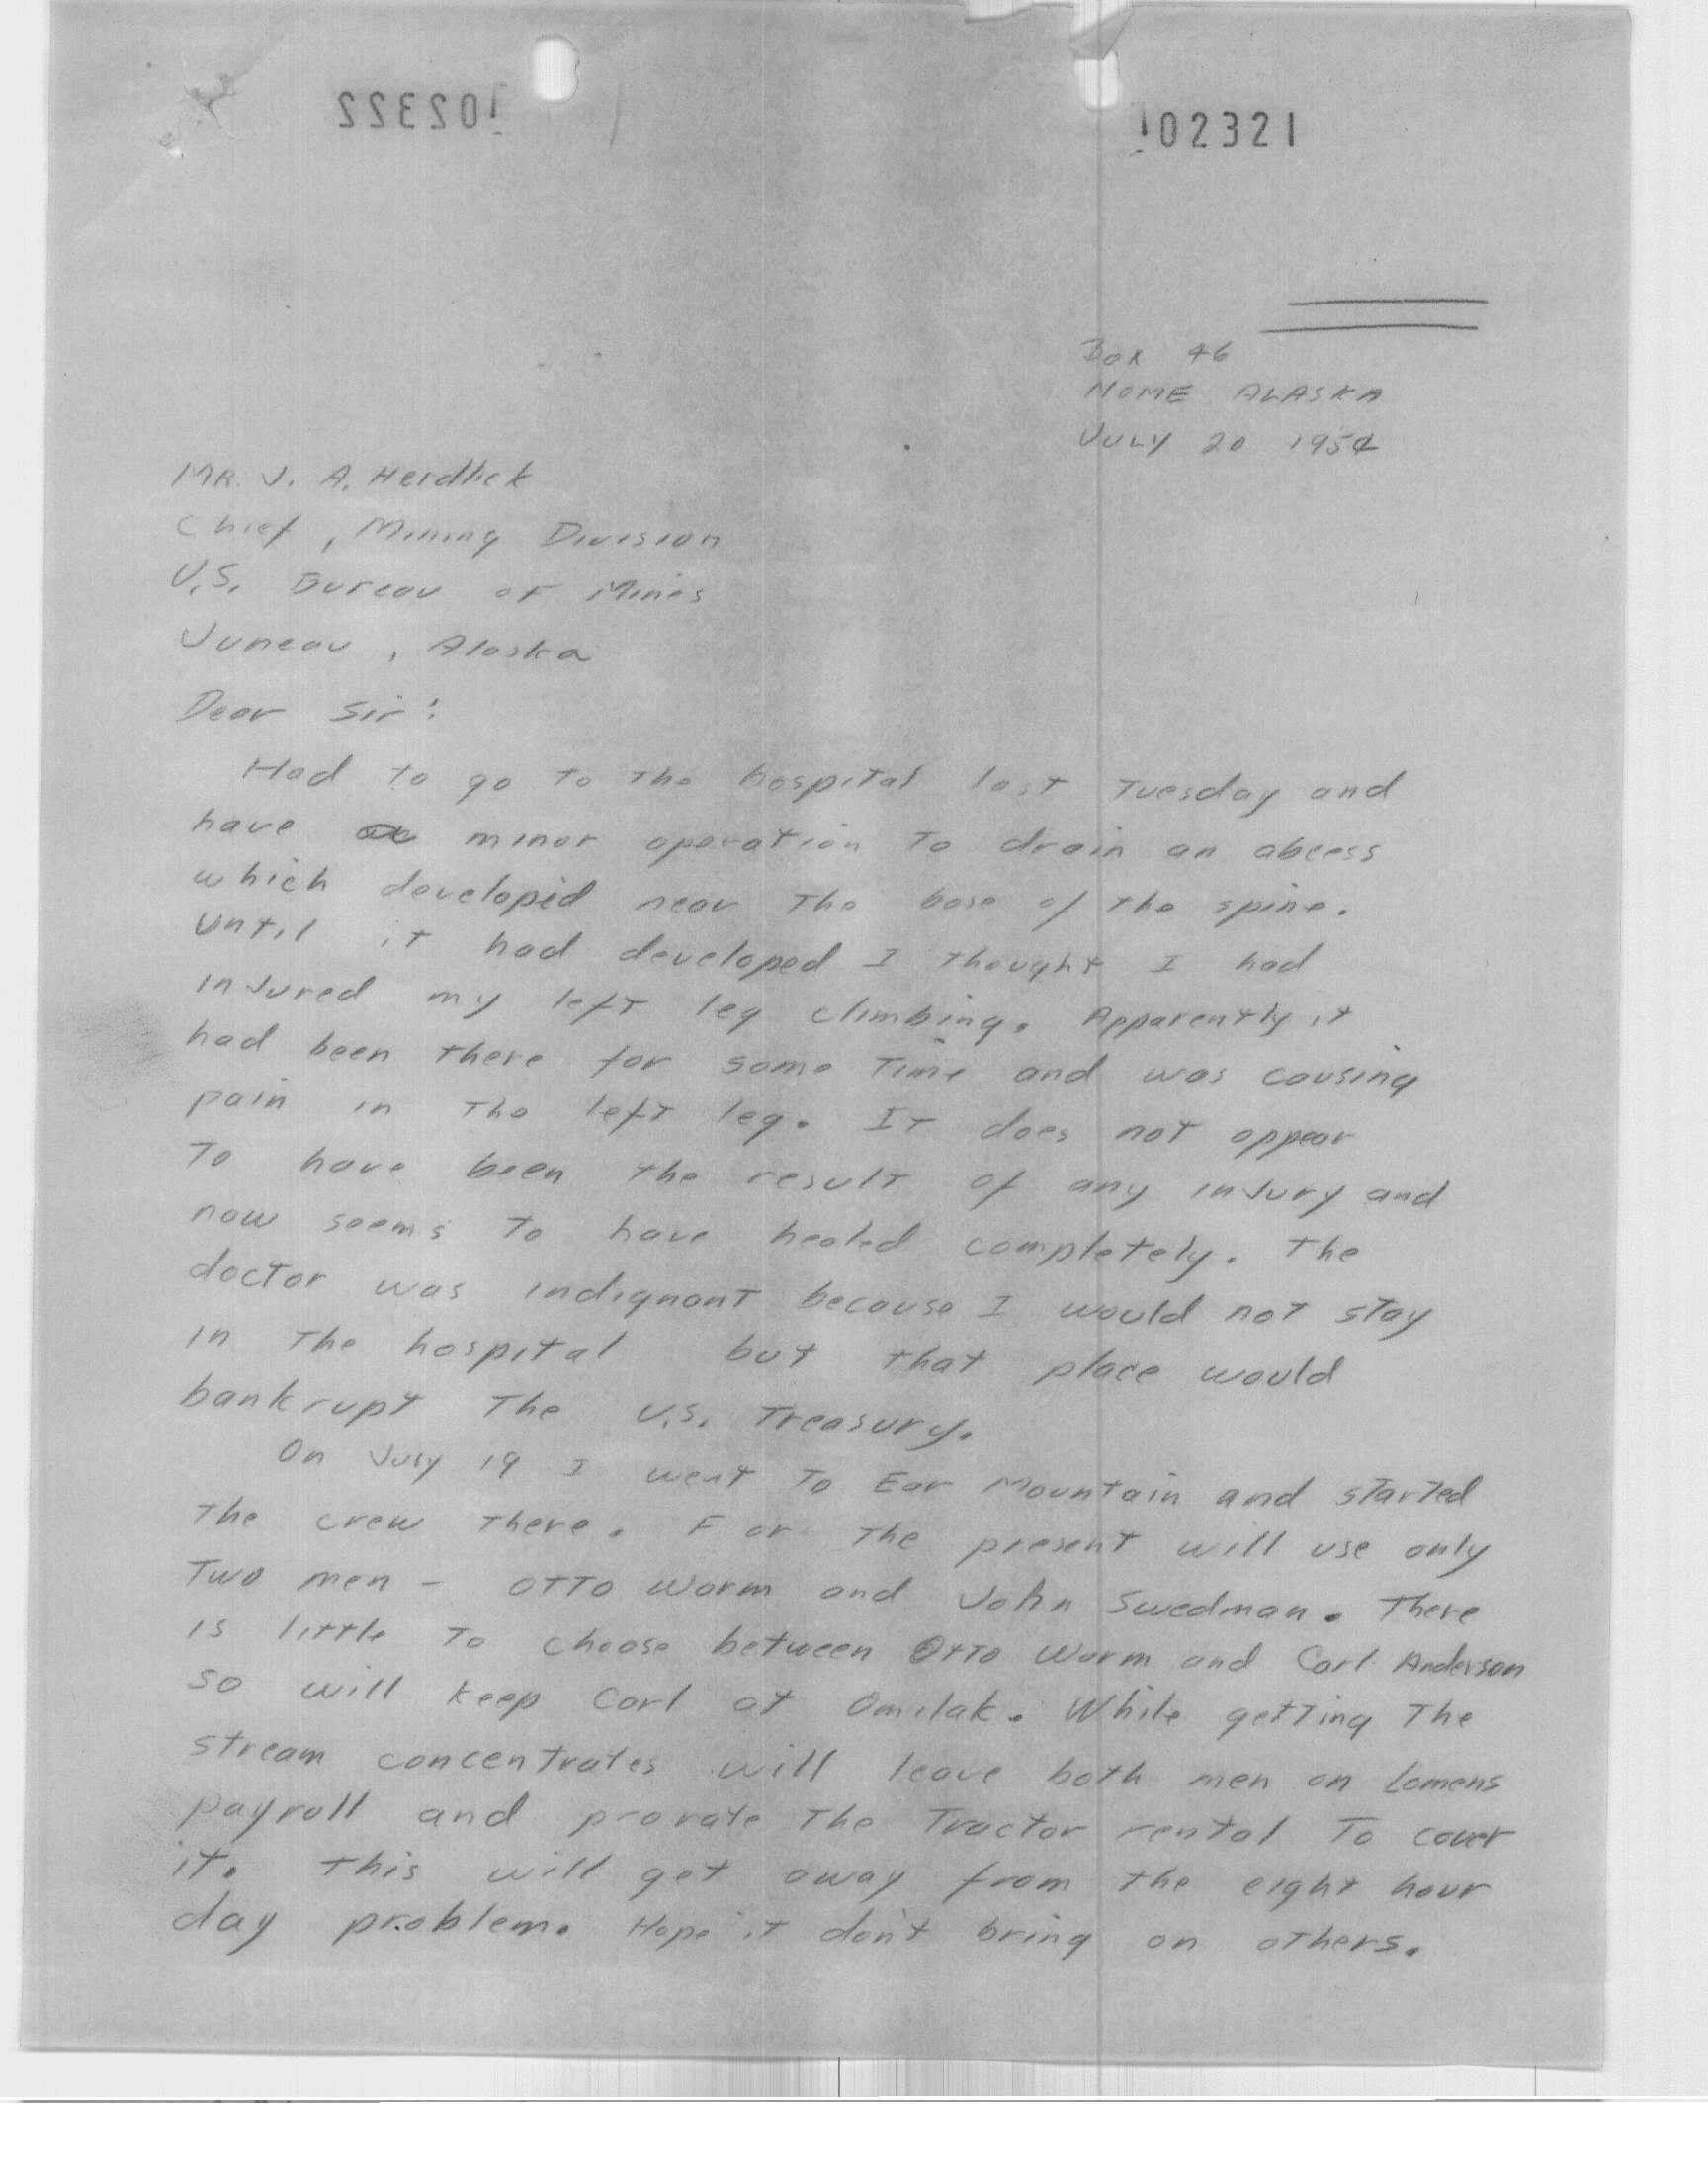 102322
102321
Box 46
NOME ALASKA
JULY 20 1954
MR. J. A. Herdlick
Chief, Mining Division
U.S. Bureau of Mines
Juneau, Alaska
Dear Sir:
Had to go to the hospital last Tuesday and
have a minor operation to drain an abcess
which developed near the base of the spine.
Until it had developed I thought I had
injured my left leg climbing. Apparently it
had been there for some time and was causing
pain in the left leg. It does not appear
to have been the result of any injury and
now seems to have healed completely. The
doctor was indignant because I would not stay
in the hospital but that place would
bankrupt the U.S. Treasury.
On July 19 I went to Ear Mountain and started
the crew there. For the present will use only
two men - Otto Worm and John Swedman. There
is little to choose between Otto Worm and Carl Anderson
so will keep Carl at Omilak. While getting the
stream concentrates will leave both men on Lomens
payroll and prorate the tractor rental to cover
it. This will get away from the eight hour
day problem. Hope it don't bring on others.